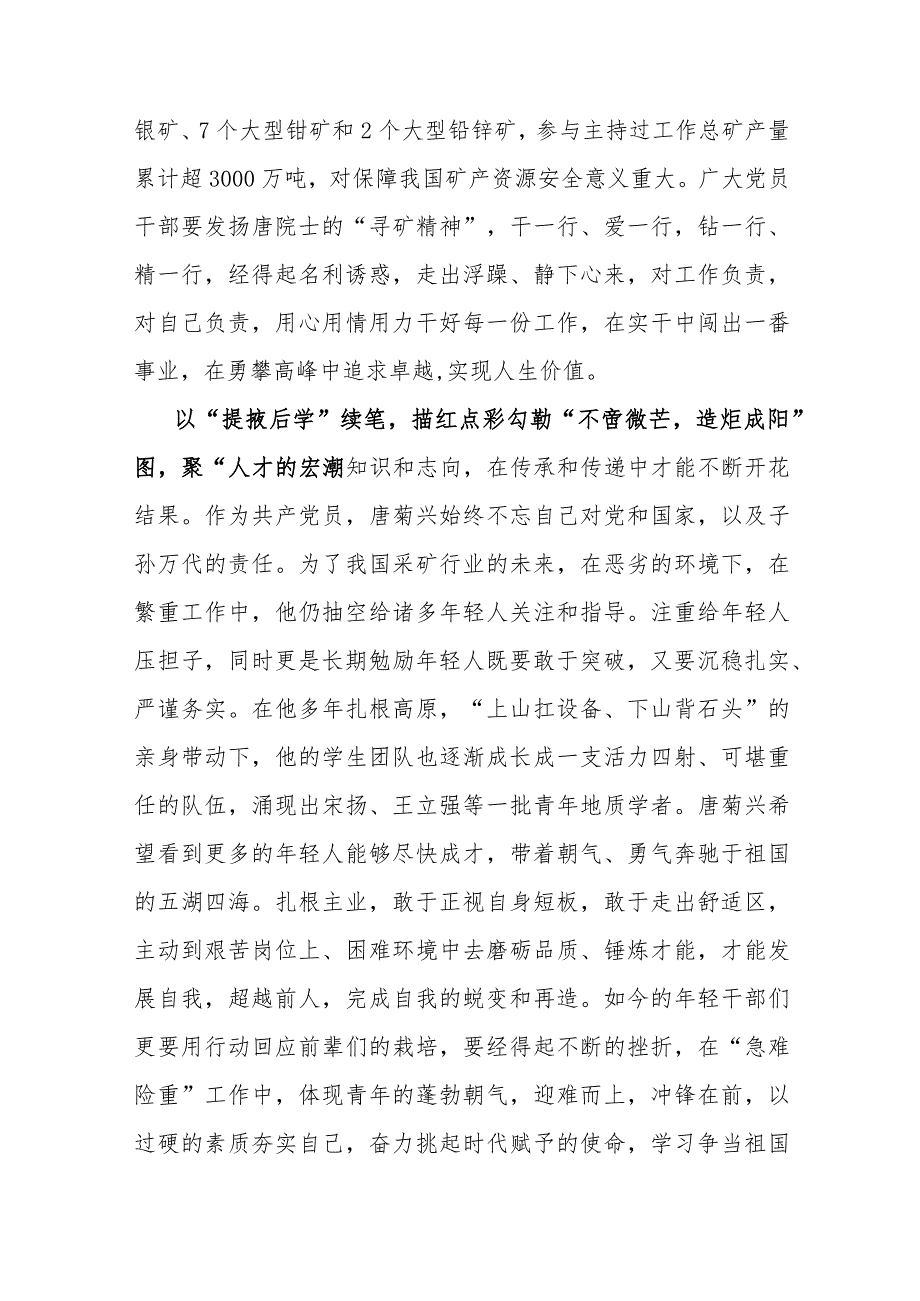 银矿、7个大型钳矿和2个大型铅锌矿，参与主持过工作总矿产量
累计超3000万吨，对保障我国矿产资源安全意义重大。广大党员
干部要发扬唐院士的“寻矿精神”，干一行、爱一行，钻一行、
精一行，经得起名利诱惑，走出浮躁、静下心来，对工作负责，
对自己负责，用心用情用力干好每一份工作，在实干中闯出一番
事业，在勇攀高峰中追求卓越,实现人生价值。
以“提掖后学”续笔，描红点彩勾勒“不啻微芒，造炬成阳”
图，聚“人才的宏潮知识和志向，在传承和传递中才能不断开花
结果。作为共产党员，唐菊兴始终不忘自己对党和国家，以及子
孙万代的责任。为了我国采矿行业的未来，在恶劣的环境下，在
繁重工作中，他仍抽空给诸多年轻人关注和指导。注重给年轻人
压担子，同时更是长期勉励年轻人既要敢于突破，又要沉稳扎实、
严谨务实。在他多年扎根高原，“上山扛设备、下山背石头”的
亲身带动下，他的学生团队也逐渐成长成一支活力四射、可堪重
任的队伍，涌现出宋扬、王立强等一批青年地质学者。唐菊兴希
望看到更多的年轻人能够尽快成才，带着朝气、勇气奔驰于祖国
的五湖四海。扎根主业，敢于正视自身短板，敢于走出舒适区，
主动到艰苦岗位上、困难环境中去磨砺品质、锤炼才能，才能发
展自我，超越前人，完成自我的蜕变和再造。如今的年轻干部们
更要用行动回应前辈们的栽培，要经得起不断的挫折，在“急难
险重”工作中，体现青年的蓬勃朝气，迎难而上，冲锋在前，以
过硬的素质夯实自己，奋力挑起时代赋予的使命，学习争当祖国